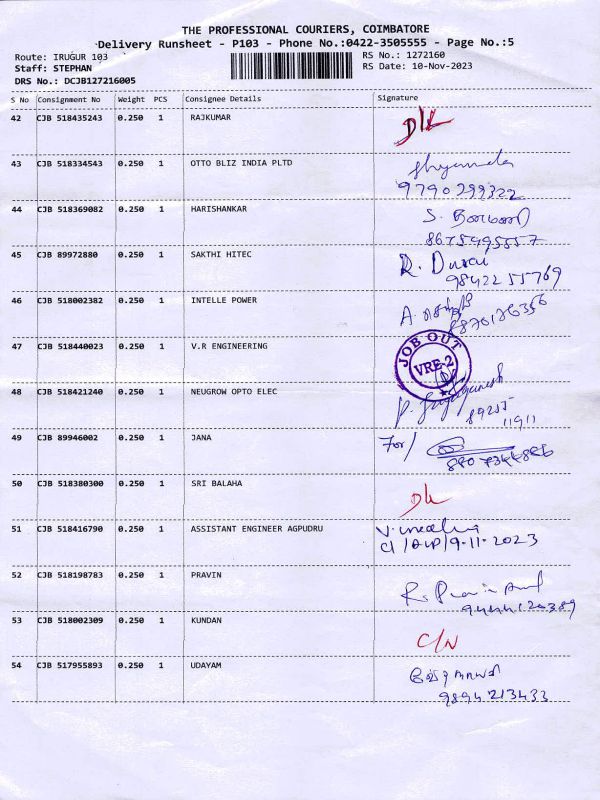 THE PROFESSIONAL COURIERS, COIMBATORE
Delivery Runsheet - P103 - Phone No.:0422-3505555 - Page No.:5
Route: IRUGUR 103 RS No.: 1272160
Staff: STEPHAN RS Date: 10-Nov-2023
DRS No.: DCJB127216005
S No Consignment No Weight PCS Consignee Details Signature
42 CJB 518435243 0.250 1 RAJKUMAR
43 CJB 518334543 0.250 1 OTTO BLIZ INDIA PLTD
9790299322
44 CJB 518369082 0.250 1 HARISHANKAR S.
8675495557
45 CJB 89972880 0.250 1 SAKTHI HITEC R. Durai
98422 55769
46 CJB 518002382 0.250 1 INTELLE POWER A.
47 CJB 518440023 0.250 1 V.R ENGINEERING JOB OUT
VRE-2
48 CJB 518421240 0.250 1 NEUGROW OPTO ELEC P.
89255
11911
49 CJB 89946002 0.250 1 JANA For/
50 CJB 518380300 0.250 1 SRI BALAHA
51 CJB 518416790 0.250 1 ASSISTANT ENGINEER AGPUDRU
9-11-2023
52 CJB 518198783 0.250 1 PRAVIN
53 CJB 518002309 0.250 1 KUNDAN C/N
54 CJB 517955893 0.250 1 UDAYAM
9894213433